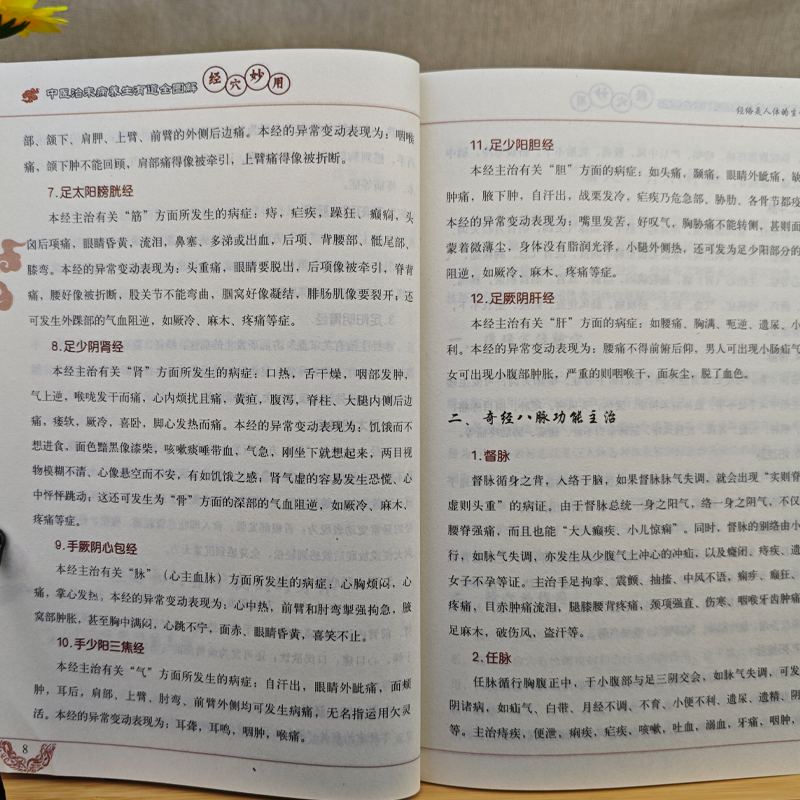 中医治未病养生有道全图解 经穴妙用
部、颌下、肩胛、上臂、前臂的外侧后边痛。本经的异常变动表现为：咽喉
痛，颌下肿不能回顾，肩部痛得像被牵引，上臂痛得像被折断。
7.足太阳膀胱经
本经主治有关“筋”方面所发生的病症：痔，疟疾，躁狂、癫痫，头
囟后项痛，眼睛昏黄，流泪，鼻塞、多涕或出血，后项、背腰部、骶尾部、
膝弯。本经的异常变动表现为：头重痛，眼睛要脱出，后项像被牵引，脊背
痛，腰好像被折断，股关节不能弯曲，腘窝好像凝结，腓肠肌像要裂开；还
可发生外踝部的气血阻逆，如厥冷、麻木、疼痛等症。
8.足少阴肾经
本经主治有关“肾”方面所发生的病症：口热，舌干燥，咽部发肿，
气上逆，喉咙发干而痛，心内烦扰且痛，黄疸，腹泻，脊柱、大腿内侧后边
痛，痿软，厥冷，喜卧，脚心发热而痛。本经的异常变动表现为：饥饿而不
想进食，面色黯黑像漆柴，咳嗽痰唾带血，气急，刚坐下就想起来，两目视
物模糊不清、心像悬空而不安，有如饥饿之感；肾气虚的容易发生恐慌、心
中怦怦跳动；这还可发生为“骨”方面的深部的气血阻逆，如厥冷、麻木、
疼痛等症。
9.手厥阴心包经
本经主治有关“脉”（心主血脉）方面所发生的病症：心胸烦闷，心
痛，掌心发热。本经的异常变动表现为：心中热，前臂和肘弯掣强拘急，腋
窝部肿胀，甚至胸中满闷，心跳不宁，面赤、眼睛昏黄，喜笑不止。
10.手少阳三焦经
本经主治有关“气”方面所发生的病症：自汗出，眼睛外眦痛，面颊
肿，耳后，肩部、上臂、肘弯、前臂外侧均可发生病痛，无名指运用欠灵
活。本经的异常变动表现为：耳聋，耳鸣，咽肿，喉痛。
8
经络是人体的生
11.足少阳胆经
本经主治有关“胆”方面的病症：如头痛，颞痛，眼睛外眦痛，缺
肿痛，腋下肿，自汗出，战栗发冷，疟疾乃危急部、胁肋、各骨节都疫
本经的异常变动表现为：嘴里发苦，好叹气，胸胁痛不能转侧，甚则面
蒙着微薄尘，身体没有脂润光泽，小腿外侧热，还可发为足少阳部分的
阻逆，如厥冷、麻木、疼痛等症。
12.足厥阴肝经
本经主治有关“肝”方面的病症：如腰痛、胸满、呃逆、遗尿、小
利。本经的异常变动表现为：腰痛不得前俯后仰，男人可出现小肠疝气
女可出现小腹部肿胀，严重的则咽喉干，面灰尘，脱了血色。
二、奇经八脉功能主治
1.督脉
督脉循身之背，入络于脑，如果督脉脉气失调，就会出现“实则脊
虚则头重”的病证。由于督脉总统一身之阳气，络一身之阴气，不仅
腰脊强痛，而且也能“大人癫疾、小儿惊痫”。同时，督脉的别络由小
行，如脉气失调，亦发生从少腹气上冲心的冲疝，以及癃闭、痔疾、遗
女子不孕等证。主治手足拘挛、震颤、抽搐、中风不语，痫疟、癫狂、
疼痛，目赤肿痛流泪，腿膝腰背疼痛，颈项强直、伤寒、咽喉牙齿肿痛
足麻木，破伤风，盗汗等。
2.任脉
任脉循行胸腹正中，于小腹部与足三阴交会，如脉气失调，可发
阴诸病，如疝气、白带、月经不调、不育、小便不利、遗尿、遗精、阴
等。主治痔疾，便泄，痢疾，疟疾，咳嗽，吐血，溺血，牙痛，咽肿，